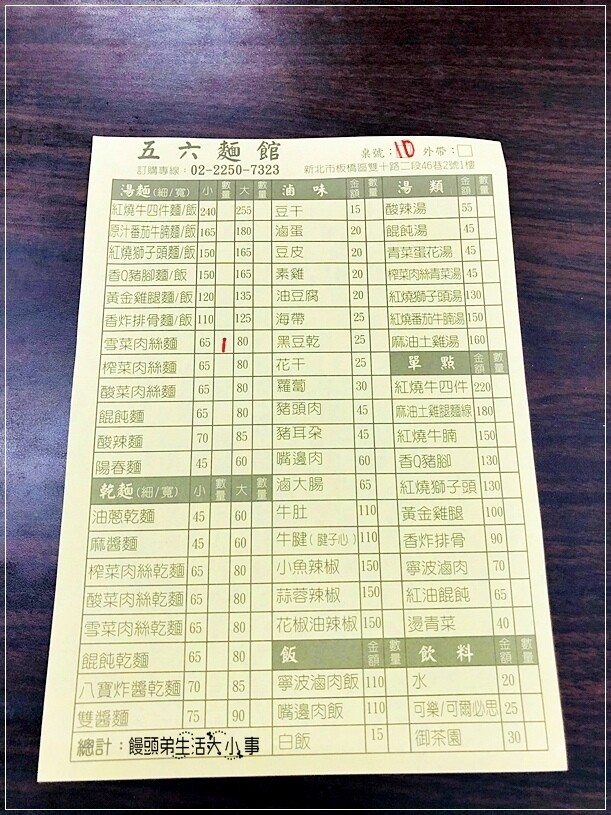 五六麵館
桌號：10 外帶：
訂購專線：02-2250-7323 新北市板橋區雙十路二段46巷2號1樓
湯麵(細/寬) 小 數量 大 數量
紅燒牛四件麵/飯 240 255
原汁番茄牛腩麵/飯 165 180
紅燒獅子頭麵/飯 150 165
香Q豬腳麵/飯 150 165
黃金雞腿麵/飯 120 135
香炸排骨麵/飯 110 125
雪菜肉絲麵 65 1 80
榨菜肉絲麵 65 80
酸菜肉絲麵 65 80
餛飩麵 65 80
酸辣麵 70 85
陽春麵 45 60
乾麵(細/寬) 小 數量 大 數量
油蔥乾麵 45 60
麻醬麵 45 60
榨菜肉絲乾麵 65 80
酸菜肉絲乾麵 65 80
雪菜肉絲乾麵 65 80
餛飩乾麵 65 80
八寶炸醬乾麵 70 85
雙醬麵 75 90
總計：
饅頭弟生活大小事
滷味 金額 數量
豆干 15
滷蛋 20
豆皮 20
素雞 20
油豆腐 20
海帶 25
黑豆乾 25
花干 25
蘿蔔 30
豬頭肉 45
豬耳朵 45
嘴邊肉 60
滷大腸 65
牛肚 110
牛腱(腱子心) 110
小魚辣椒 150
蒜蓉辣椒 150
花椒油辣椒 150
飯 金額 數量
寧波滷肉飯 110
嘴邊肉飯 110
白飯 15
湯類 金額 數量
酸辣湯 55
餛飩湯 45
青菜蛋花湯 45
榨菜肉絲青菜湯 45
紅燒獅子頭湯 130
紅燒番茄牛腩湯 150
麻油土雞湯 160
單點 金額 數量
紅燒牛四件 220
麻油土雞腿麵線 180
紅燒牛腩 150
香Q豬腳 130
紅燒獅子頭 130
黃金雞腿 100
香炸排骨 90
寧波滷肉 70
紅油餛飩 65
燙青菜 40
飲料 金額 數量
水 20
可樂/可爾必思 25
御茶園 30